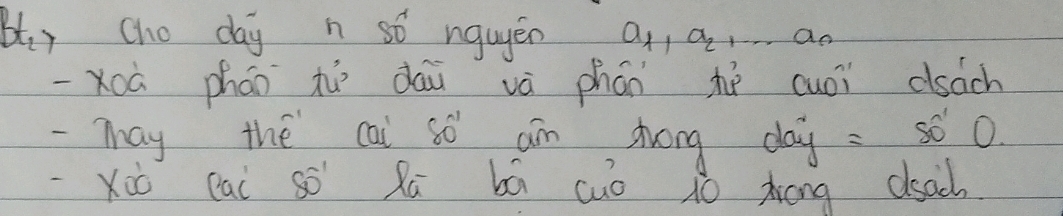 Bt2> Cho dãy n số nguyên a1, a2, ... an
- Xoá phần tử đầu và phần tử cuối dsách
- Thay thế các số âm trong dãy = số 0.
- Xoá các số là bội của 10 trong dsách.